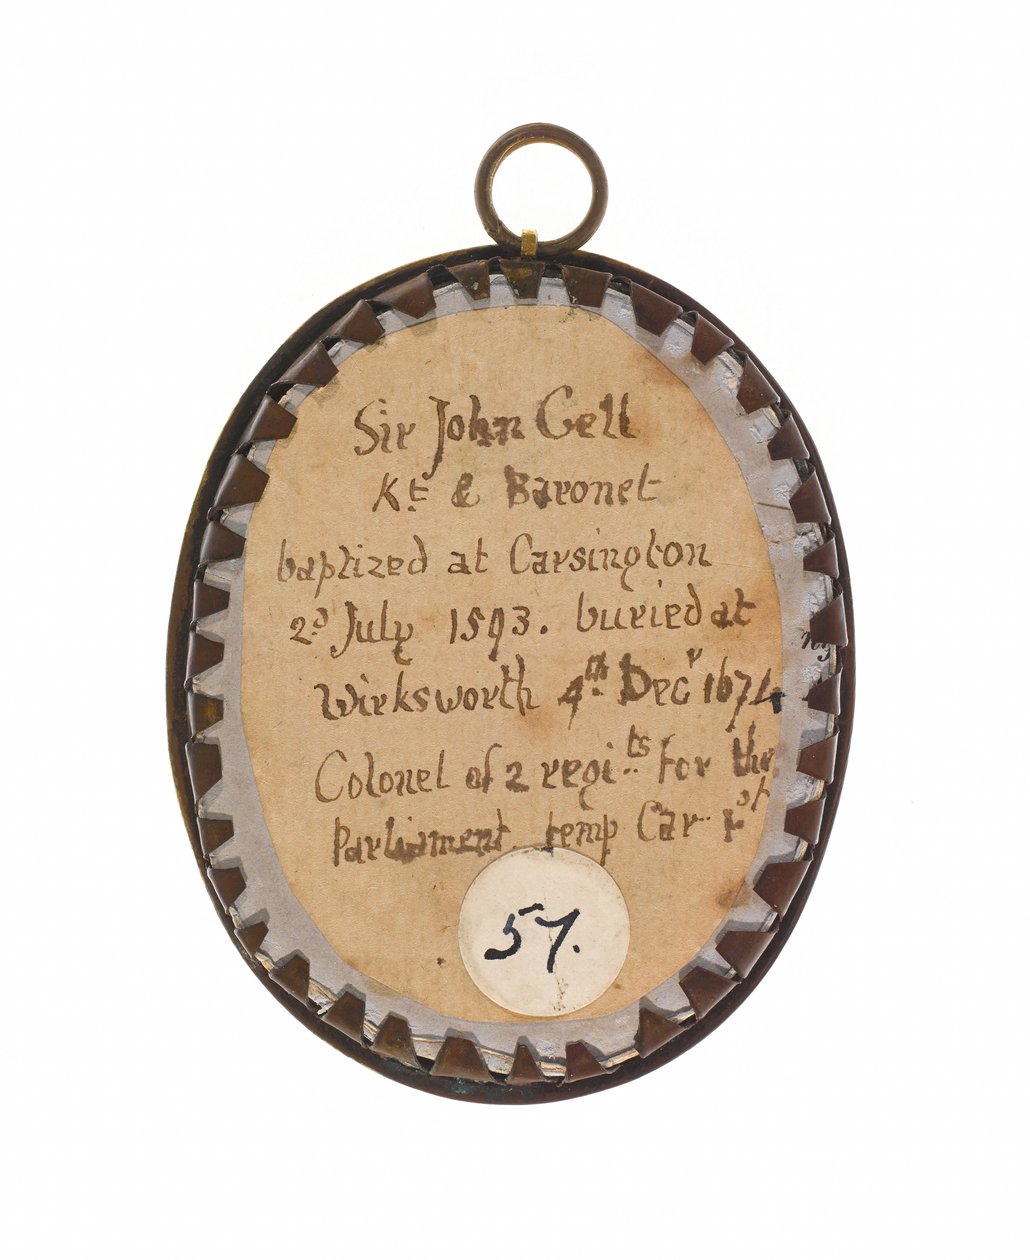 Sir John Gell
Kt & Baronet
baptized at Carsington
2d July 1593. buried at
Wirksworth 4th. Decr 1674
Colonel of 2 regi:ts for the
Parliament temp Car 1st
57.